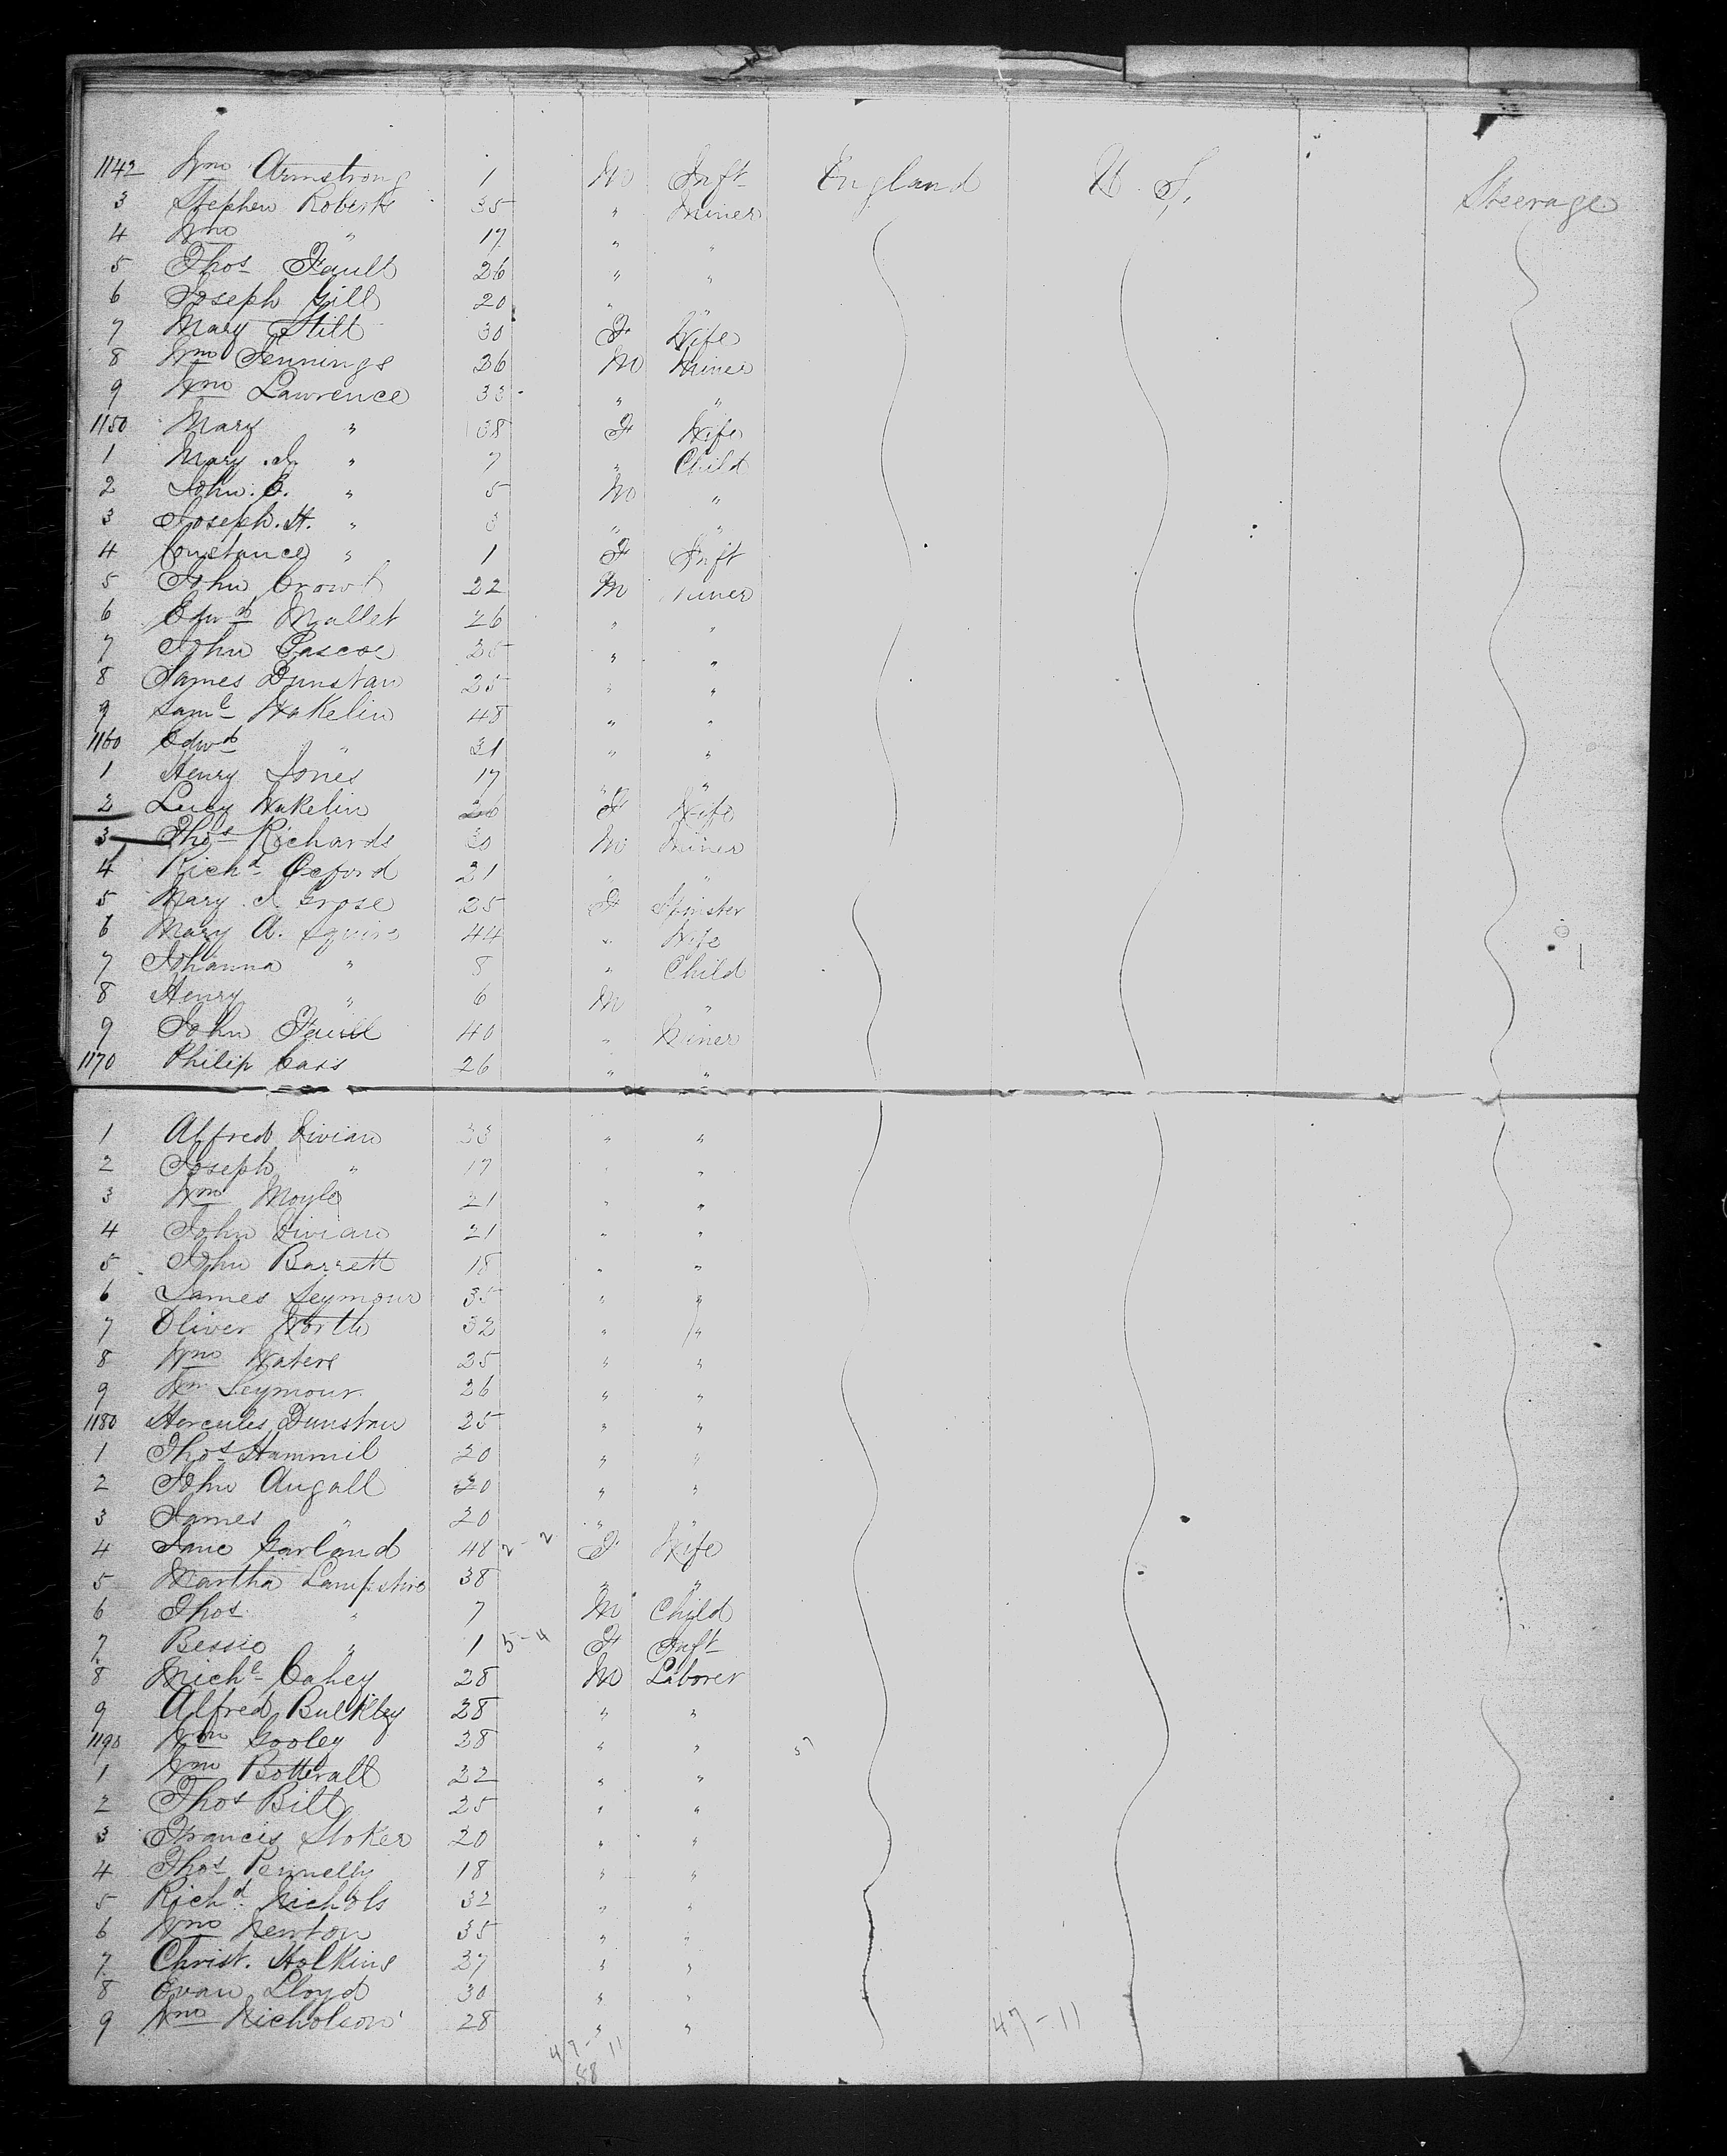 1142 Wm Armstrong 1 M Inft England U. S. Steerage
3 Stephen Roberts 35 " Miner
4 Wm " 17 " "
5 Thos Faull 26 " "
6 Joseph Gill 20 " "
7 Mary Still 30 F Wife
8 Wm Jennings 36 M Miner
9 Wm Lawrence 33 " "
1150 Mary " 38 F Wife
1 Mary J. " 7 " Child
2 John E. " 5 M "
3 Joseph H. " 3 " "
4 Constance " 1 F Inft
5 John 22 M Miner
6 Edwd Mallet 26 " "
7 John Pascoe 25 " "
8 James Dunstan 25 " "
9 Saml Wakelin 48 " "
1160 Edwd " 21 " "
1 Henry Jones 17 " "
2 Lucy Wakelin F Wife
3 Thos Richards 30 M Miner
4 Richd Oxford 21 " "
5 Mary J. Grose 25 F Spinster
6 Mary A. Squire 44 " Wife
7 Johanna " 8 " Child
8 Henry " 6 M "
9 John Faull 40 " Miner
1170 Philip Cass 26 " "
1 Alfred Vivian 33 " "
2 Joseph " 17 " "
3 Wm Moyle 21 " "
4 John Vivian 21 " "
5 John Barrett 18 " "
6 James Seymour 35 " "
7 Oliver North 32 " "
8 Wm Waters 25 " "
9 Wm Seymour 26 " "
1180 Hercules Dunstan 25 " "
1 Thos Hammil 20 " "
2 John Angall 20 " "
3 James " 20 " "
4 Jane Garland 48 2-2 F Wife
5 Martha Lampshire 38 " "
6 Thos " 7 M Child
7 Bessie " 1 5-4 F Inft
8 Michl Cahey 28 M Laborer
9 Alfred Bulkley 28 " "
1190 Wm Gooley 38 " "
1 Wm Botterall 22 " "
2 Thos Bill 25 " "
3 Francis Stoker 20 " "
4 Thos Pennelly 18 " "
5 Richd Nichols 32 " "
6 Wm Newton 35 " "
7 Christ. Holkins 27 " "
8 Evan Lloyd 30 " "
9 Wm Nicholson 28 " "
47-11 47-11
58